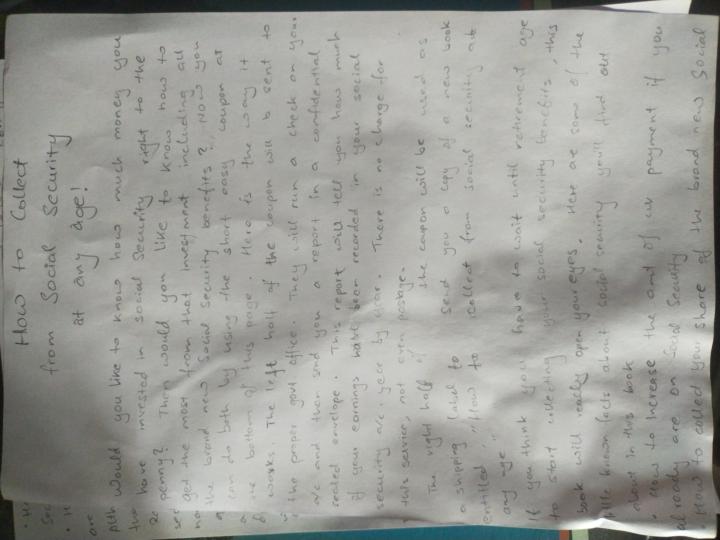 How to Collect
from Social Security
at any age!
Would you like to know how much money you
have invested in Social Security right to the
penny? Then would you like to know how to
get the most from that investment including all
the brand new Social Security benefits? Now you
can do both by using the short easy coupon at
bottom of this page. Here is the way it
works. The left half of the coupon will b sent to
the proper govt office. They will run a check on your
a/c and then send you a report in a confidential
sealed envelope. This report will tell you how much
if your earnings have been recorded in your social
security a/c year by year. There is no charge for
this service, not even postage.
The right half of the coupon will be used as
a shipping label to send you a copy of a new book
entitled "How to collect from social security at
any age"
If you think you have to wait until retirement age
to start collecting your social security benefits, this
book will really open your eyes. Here are some of the
little known facts about social security you'll find out
about in this book
• How to Increase the amt of ur payment if you
already are on Social Security
• How to called your share of the brand new Social